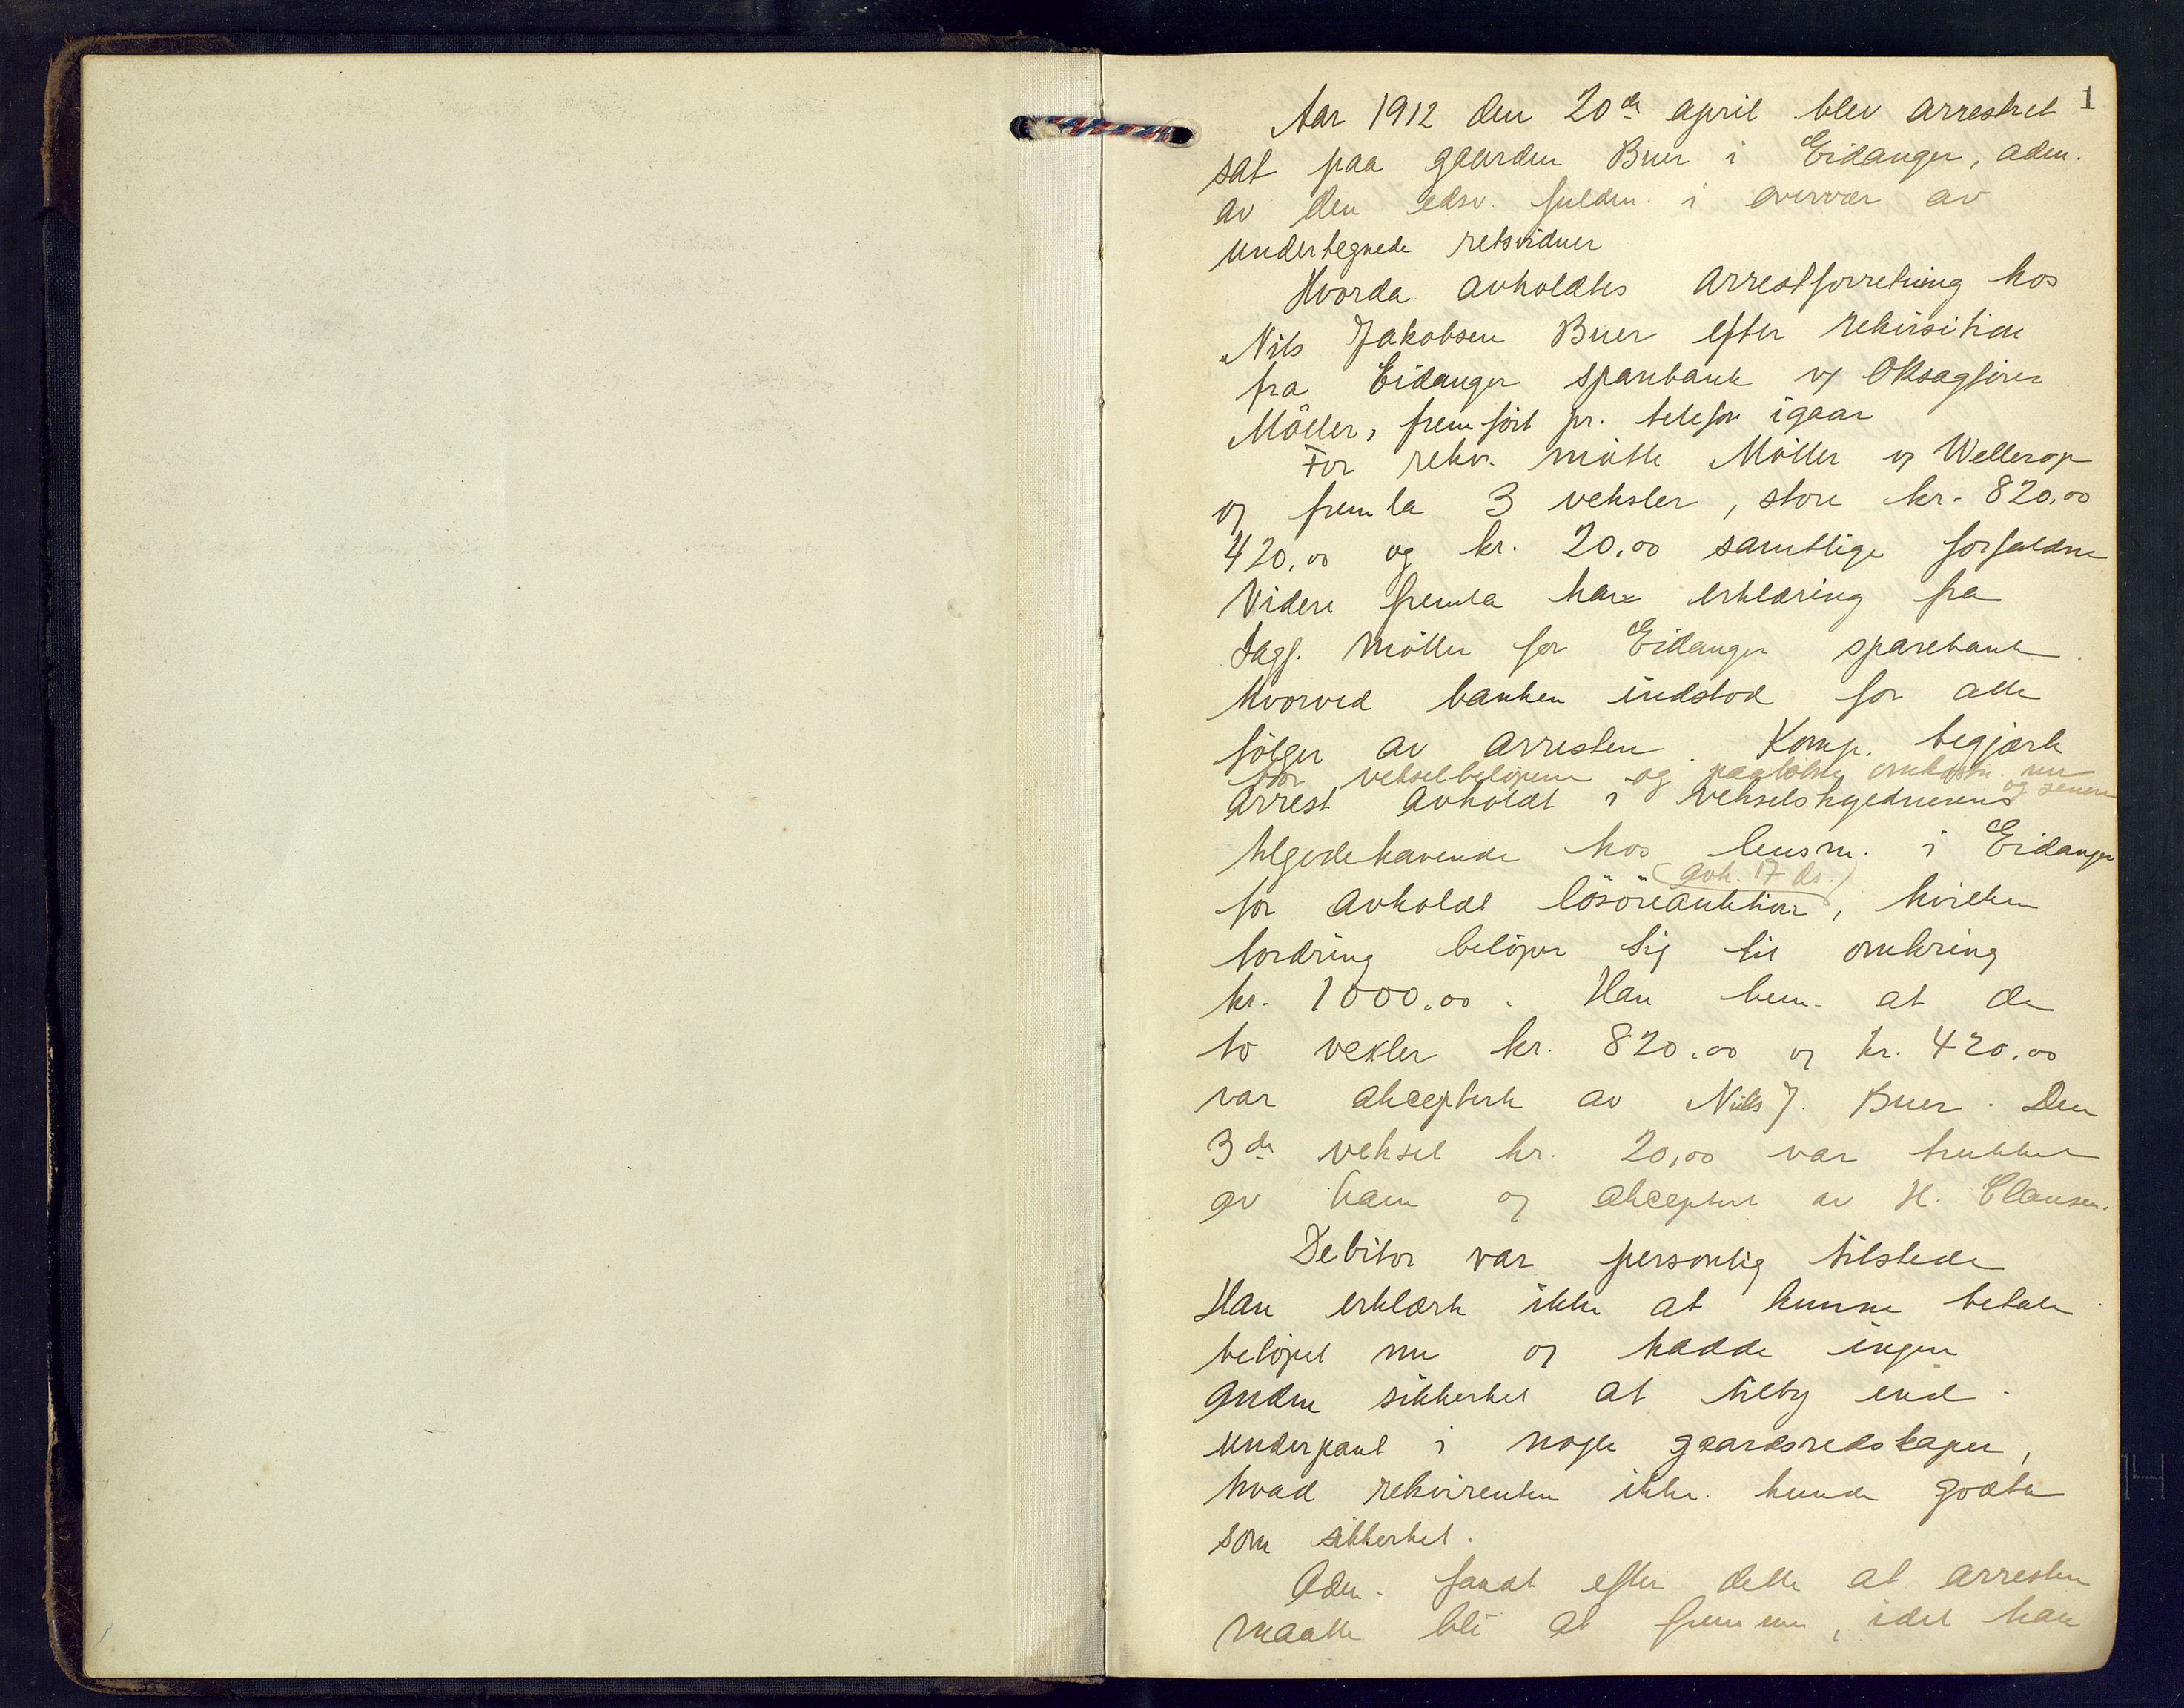 1
Aar 1912 den 20de april blev arrestret
sat paa gaarden Buer i Eidanger, adm.
av den edsv. fuldm. i overvær av
undertegnede retsvidner
Hvorda avholdtes arrestforretning hos
Nils Jakobsen Buer efter rekvisition
fra Eidanger sparebank v/ Oksagfører
Möller, fremført pr. telefon igaar
For rekv. møtte Möller og Wellerop
og fremla 3 veksler, store kr. 820.00
420.00 og kr. 20.00 samtlige forfaldne
Videre fremla han erklæring fra
Sagf. Möller for Eidanger sparebank
hvorved banken indstod for alle
følger av arresten. Komp. begjærte
for vekselbeløpene og paaløbne omkostn. nu
og senere
arrest avholdt i vekselskyldnerens
tilgodehavende hos lensm. i Eidanger
(avh. 17 ds.)
for avholdt løsøreauktion, hvilken
fordring beløper sig til omkring
kr. 1000.00. Han bem. at de
to vexler kr. 820.00 og kr. 420.00
var akcepterte av Nils J. Buer. Den
3de veksel kr. 20,00 var trukket
av ham og akceptert av H. Clausen.
Debitor var personlig tilstede
Han erklærte ikke at kunne betale
beløpet nu og hadde ingen
anden sikkerhet at tilby end
underpant i nogle gaardsredskaper,
hvad rekvirenten ikke kunde godta
som sikkerhet.
Adm. fandt efter dette at arresten
maatte bli at fremme, idet han